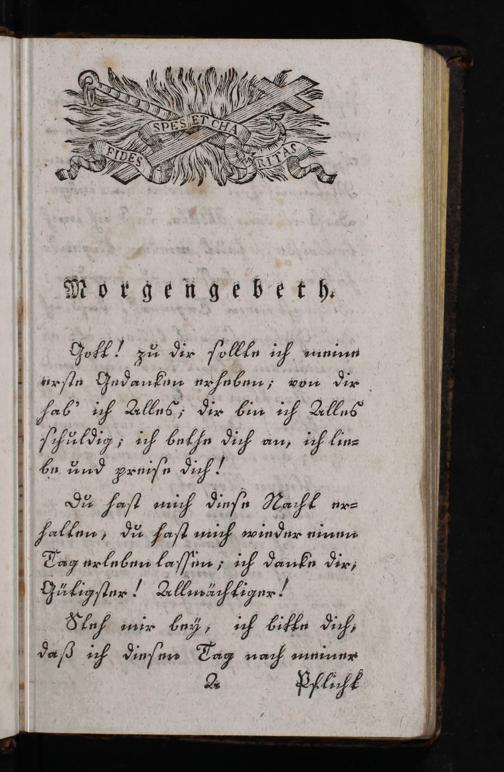 SPES ET CHA
FIDES
RITAS
Morgengebeth.
Gott! zu dir sollte ich meine
erste Gedanken erheben; von dir
hab' ich Alles; dir bin ich Alles
schuldig; ich bethe dich an, ich lie=
be und preise dich!
Du hast mich diese Nacht er=
halten, du hast mich wieder einen
Tag erleben lassen; ich danke dir,
Gütigster! Allmächtiger!
Steh mir bey, ich bitte dich,
daß ich diesen Tag nach meiner
Pflicht